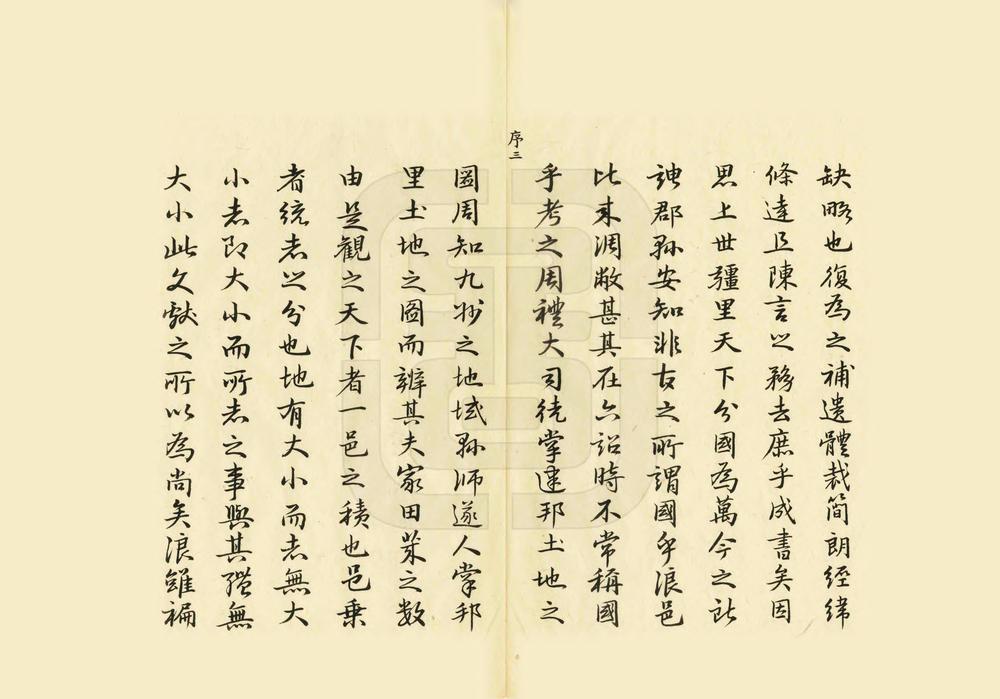 缺略也復為之補遺體裁簡朗經緯
條達且陳言之務去庶乎成書矣因
思上世疆里天下分國為萬今之所
謂郡縣安知非古之所謂國乎浪邑
比来凋敝甚其在六詔時不常稱國
乎考之周禮大司徒掌建邦土地之
序三
圖周知九州之地域縣師遂人掌邦
里土地之圖而辨其夫家田萊之數
由是觀之天下者一邑之積也邑乗
者統志之分也地有大小而志無大
小志即大小而所志之事與其無
大小此文獻之所以為尚矣浪雖褊